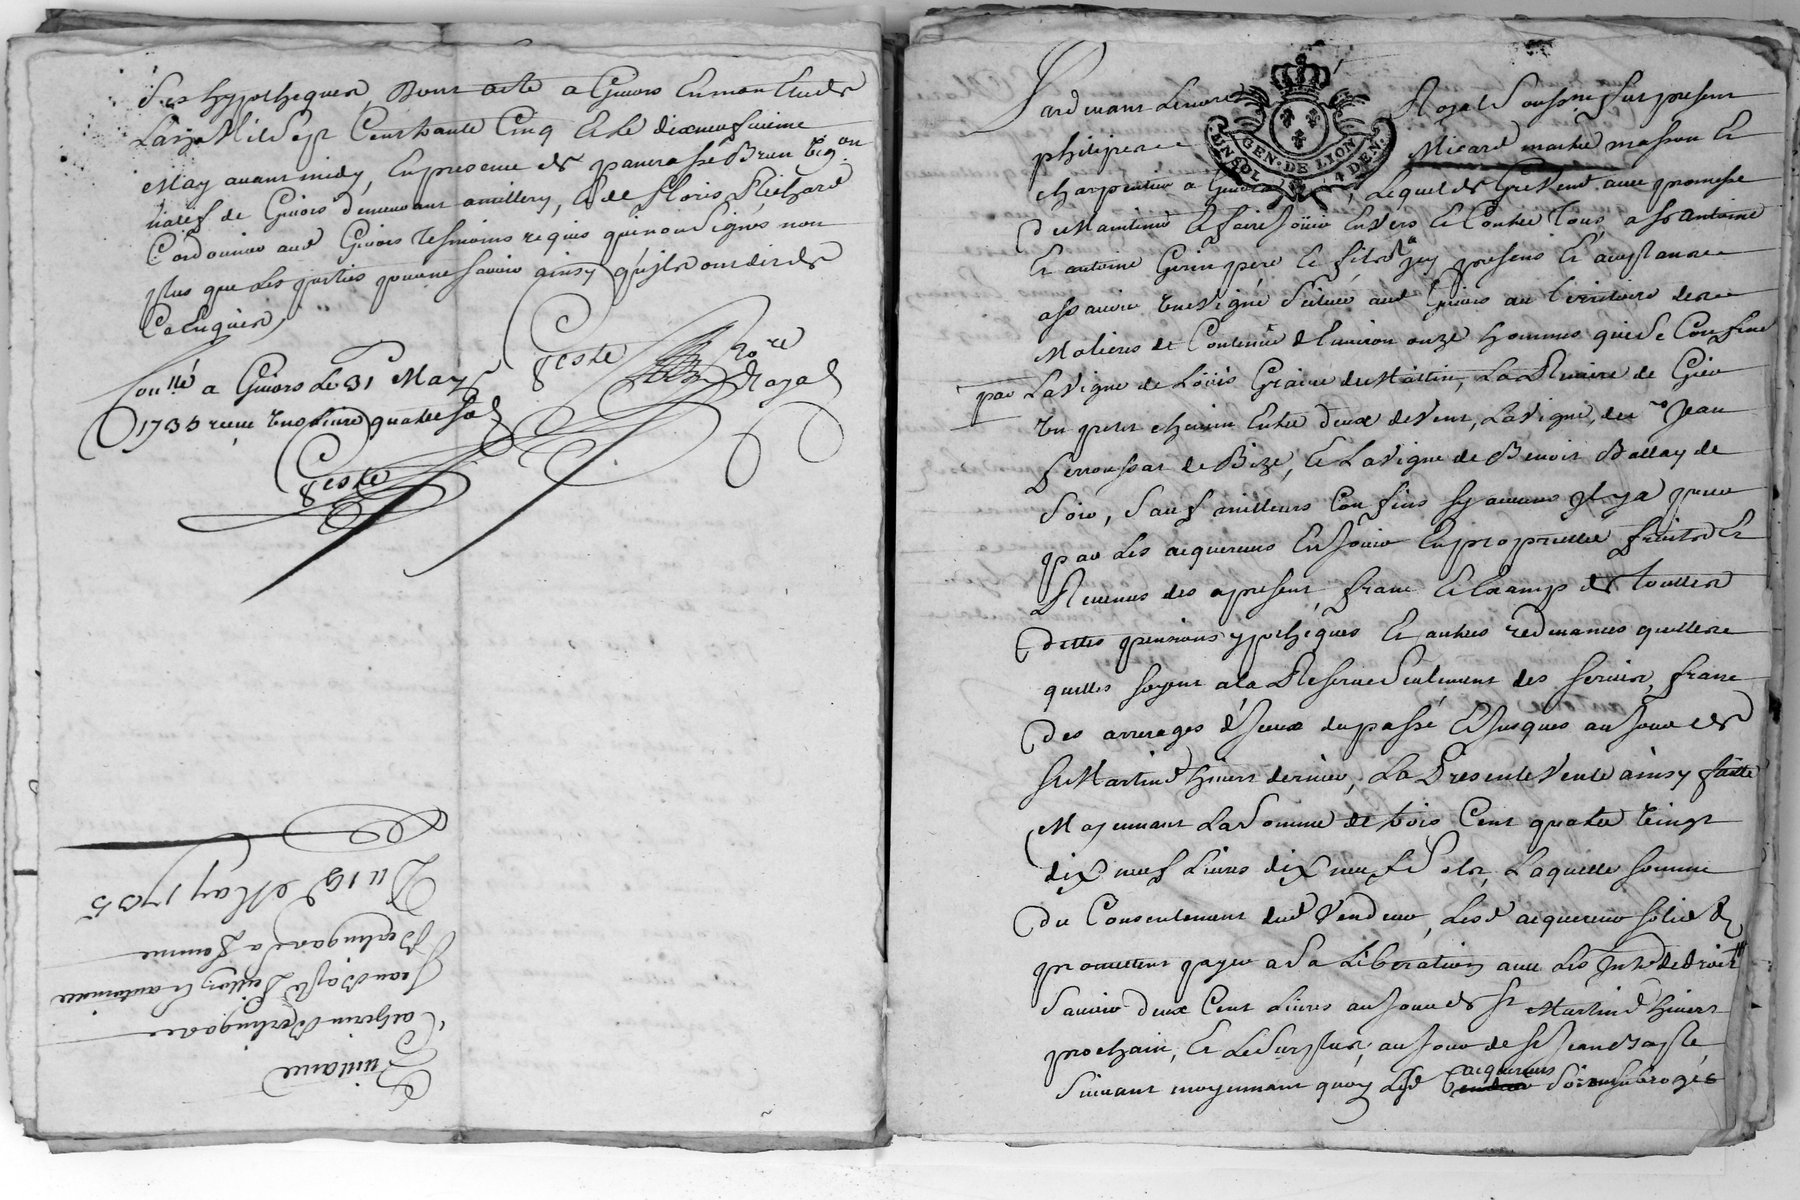 des hypotheques, Dont acte a Givors En mon Etude
L'an Mil Sept Cent trante Cinq et le dixneufvieme
May avant midy, En presence de pancrasse Brun vigon
natif de Givors demeurant a millery, et de floris Richard
Cordonnier aud Givors tesmoins requis qui n'ont Signés non
plus que Les parties pour ne Savoir ainsy qu'ils ont dit de
Ce Enquis,
Conllé a Givors Le 31 May
1735 receu Une livre quatre sols
Geste
Geste nore Royal
Du 19e May 1735
Quittance
Catherin Berlingard
Jean Bapte et antoinette
Berlingard a femme
Pardevant Le nore Royal Soussigné fut present
GEN·DE LYON
UN SOL 4 DEN.
philippe Micard maitre masson et
charpentier a Givors, Lequel de Gré Vend avec promesse
de Maintenir et faire Joüir Envers et Contre tous, a Sr antoine
et antoine Gerin pere et fils icy presens et acceptants
assavoir Une vigne Scituée aud Givors au territoire des
Molieres de Contenüe d'Environ onze hommes qui Se Confine
par La vigne de Loüis Graive de Matin, La Riviere de Gier
Un petit chemin Entre deux de Vent, La vigne de me Jean
de Bize, et La vigne de Benoit Ballay de
Soir, Sauf meilleurs Confins Sy aucuns il y a pour
par Les acquereurs En Joüir En proprietté fruits et
Revenus des apresent, franc et Exampt de touttes
dettes pensions ypotheques et autres redevances quelles
quelles soyent a la Reserve Seulement des servis, franc
des arrerages d'Iceux du passé et Jusques au Jour de
St Martin d'hivert dernier, La Presente Vente ainsy faitte
Moyennant La Somme de trois Cent quatre vingt
dix neuf Livres dix neuf Sols, Laquelle somme
du Consentement dud Vendeur, Lesd acquereurs solid
promettent payer a Sa Liberation avec Les Intts de droit
Savoir deux Cent Livres au Jour de St Martin d'hivert
prochain, et Le Surplus, au Jour de St Jean Bapte
acquereurs
Suivant moyennant quoy Lesd Sont Subrogés